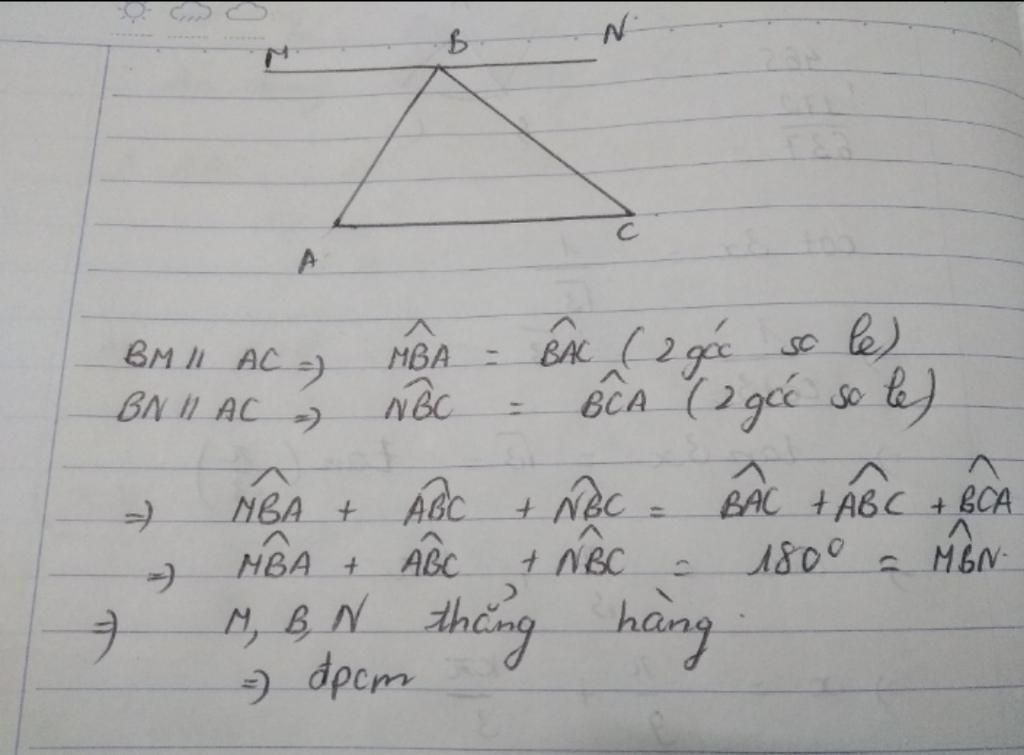 M B N
A C
BM // AC => \widehat{MBA} = \widehat{BAC} (2 góc so le)
BN // AC => \widehat{NBC} = \widehat{BCA} (2 góc so le)
=> \widehat{MBA} + \widehat{ABC} + \widehat{NBC} = \widehat{BAC} + \widehat{ABC} + \widehat{BCA}
=> \widehat{MBA} + \widehat{ABC} + \widehat{NBC} = 180° = \widehat{MBN}.
=> M, B, N thẳng hàng.
=> đpcm